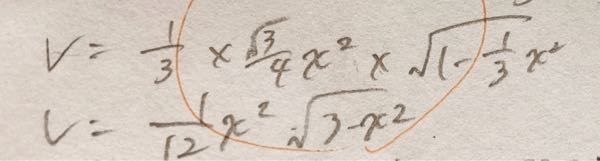 V = 1/3 × √3/4 x² × √(1 - 1/3 x²)
V = 1/12 x² √(3 - x²)